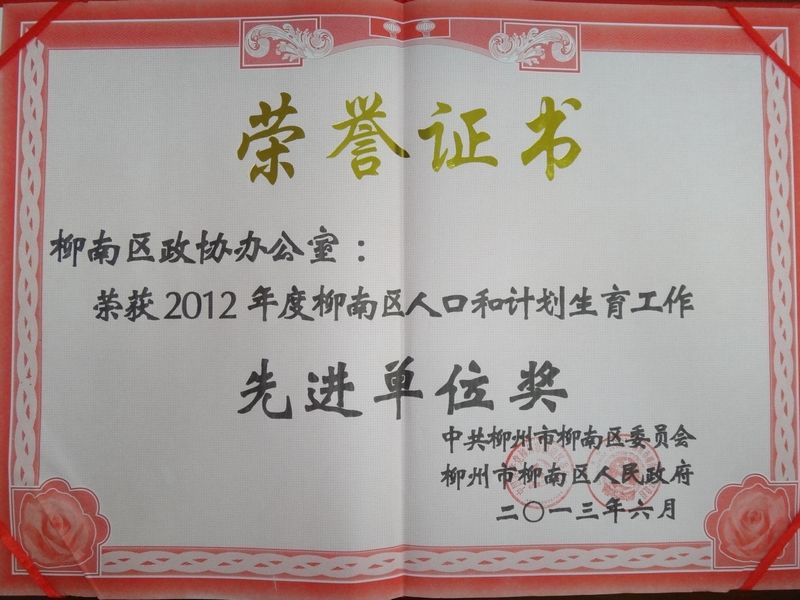 荣誉证书
柳南区政协办公室：
荣获2012年度柳南区人口和计划生育工作
先进单位奖
中共柳州市柳南区委员会
柳州市柳南区人民政府
二〇一三年六月